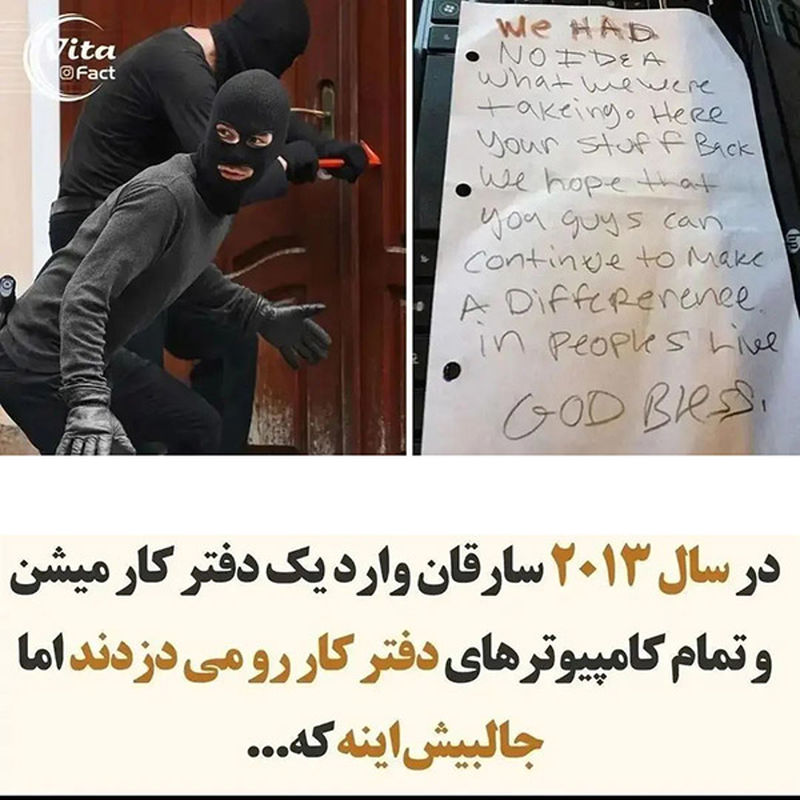 Vita
Fact
We HAD
NO IDEA
what we were
takeing. Here
your stuff Back
We hope that
you guys can
continue to Make
A Difference
in peoples Live
GOD Bless.
hp
در سال ۲۰۱۳ سارقان وارد یک دفتر کار میشن
و تمام کامپیوترهای دفتر کار رو می دزدند اما
جالبیش اینه که...